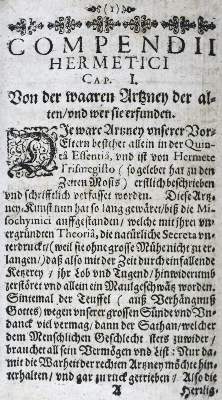 (1)
COMPENDII
HERMETICI
CAP. I.
Von der waaren Artzney der al-
ten/vnd wer sie erfunden.
DJe ware Artzney vnserer Vor-
Eltern bestehet allein in der Quin-
tâ Essentiâ, vnd ist von Hermete
Trismegisto (so gelebet hat zu den
Zeiten Mosis) erstlich beschrieben
vnd schrifftlich verfasset worden. Diese Artz-
ney Kunst nun hat so lang gewäret/biß die Mi-
sochymici auffgestanden/ welche mit ihrer vn-
gegründten Theoriâ, die natürliche Secreta vn-
terdruckt/(weil sie ohne grosse Mühe nicht zu er-
langen/)daß also mit der Zeit durch einfallende
Ketzerey / jhr Lob vnd Tugend/hinwiderumb
zerstöret vnd allein ein Maulgeschwätz worden.
Sintemal der Teuffel (auß Verhängnuß
Gottes) wegen vnserer grossen Sünde vnd Vn-
danck viel vermag/dann der Sathan/welcher
dem Menschlichen Geschlecht stets zuwider/
brauchet all sein Vermögen vnd List: Nur da-
mit die Warheit der rechten Artzney möchte hin-
terhalten/ vnd gar zu ruck getrieben / Also die
A Hertzlig-